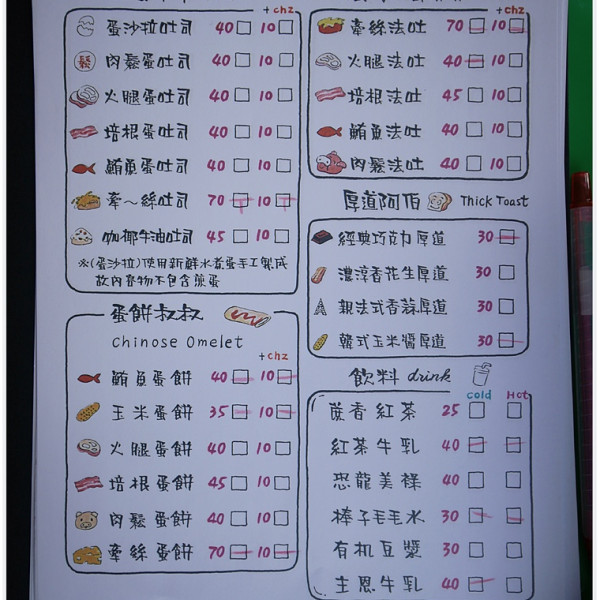 +chz
蛋沙拉吐司 40 10
肉鬆蛋吐司 40 10
鬆
火腿蛋吐司 40 10
培根蛋吐司 40 10
鮪魚蛋吐司 40 10
牽～絲吐司 70 10
咖椰牛油吐司 45 10
※(蛋沙拉)使用新鮮水煮蛋手工製成
故內容物不包含煎蛋
蛋餅叔叔
chinose Omelet
+chz
鮪魚蛋餅 40 10
玉米蛋餅 35 10
火腿蛋餅 40 10
培根蛋餅 45 10
肉鬆蛋餅 40 10
牽絲蛋餅 70 10
+chz
牽絲法吐 70 10
火腿法吐 40 10
培根法吐 45 10
鮪魚法吐 40 10
肉鬆法吐 40 10
厚道阿伯 Thick Toast
經典巧克力厚道 30
濃淳香花生厚道 30
親法式香蒜厚道 30
韓式玉米醬厚道 30
飲料 drink
cold Hot
蔗香紅茶 25
紅茶牛乳 40
恐龍美祿 40
棒子毛毛水 30
有机豆漿 30
主恩牛乳 40